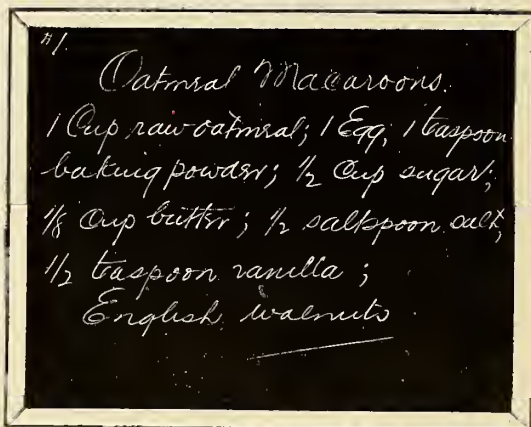 #1.
Oatmeal Macaroons.
1 Cup raw oatmeal; 1 Egg, 1 teaspoon
baking powder; 1/2 Cup sugar;
1/8 Cup butter; 1/2 saltspoon salt,
1/2 teaspoon vanilla;
English walnuts.